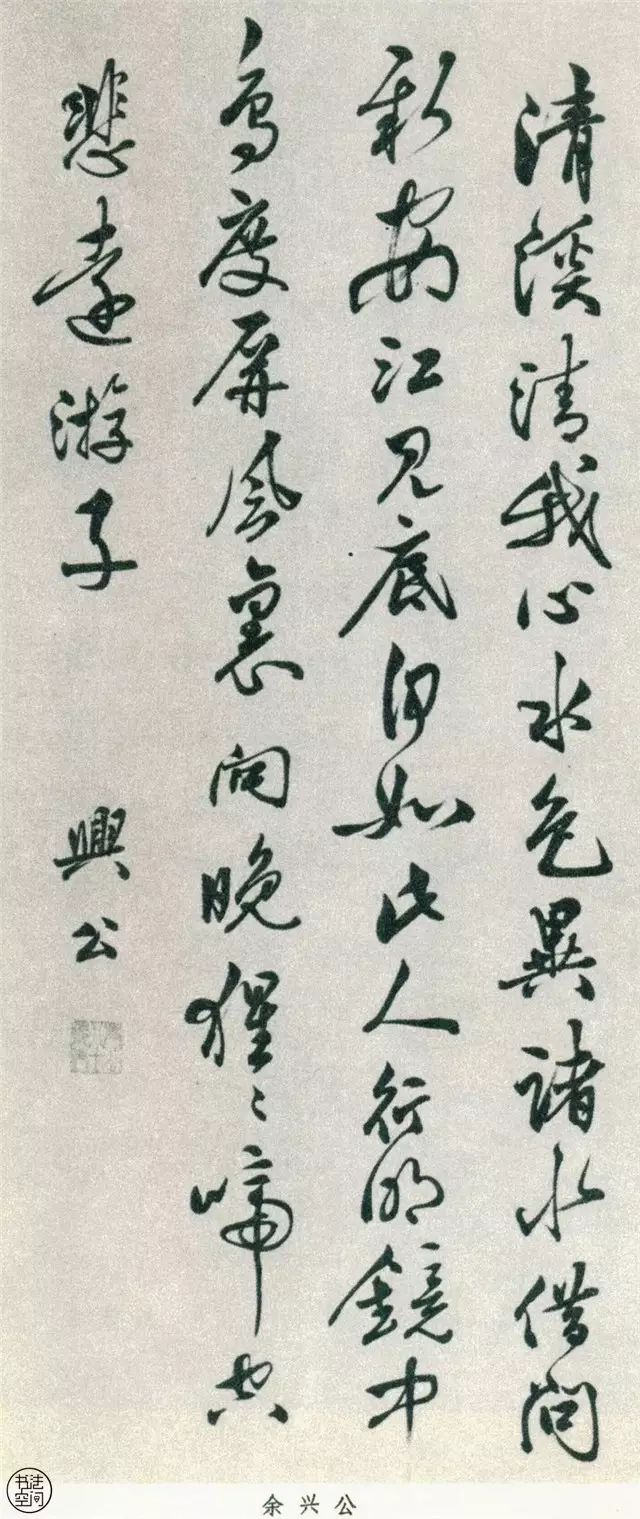 清溪清我心水色異諸水借问
新安江见底何如此人行明鏡中
鸟度屏风裏向晚猩〻啼空
悲遠游子
興公
余兴公
书法空间